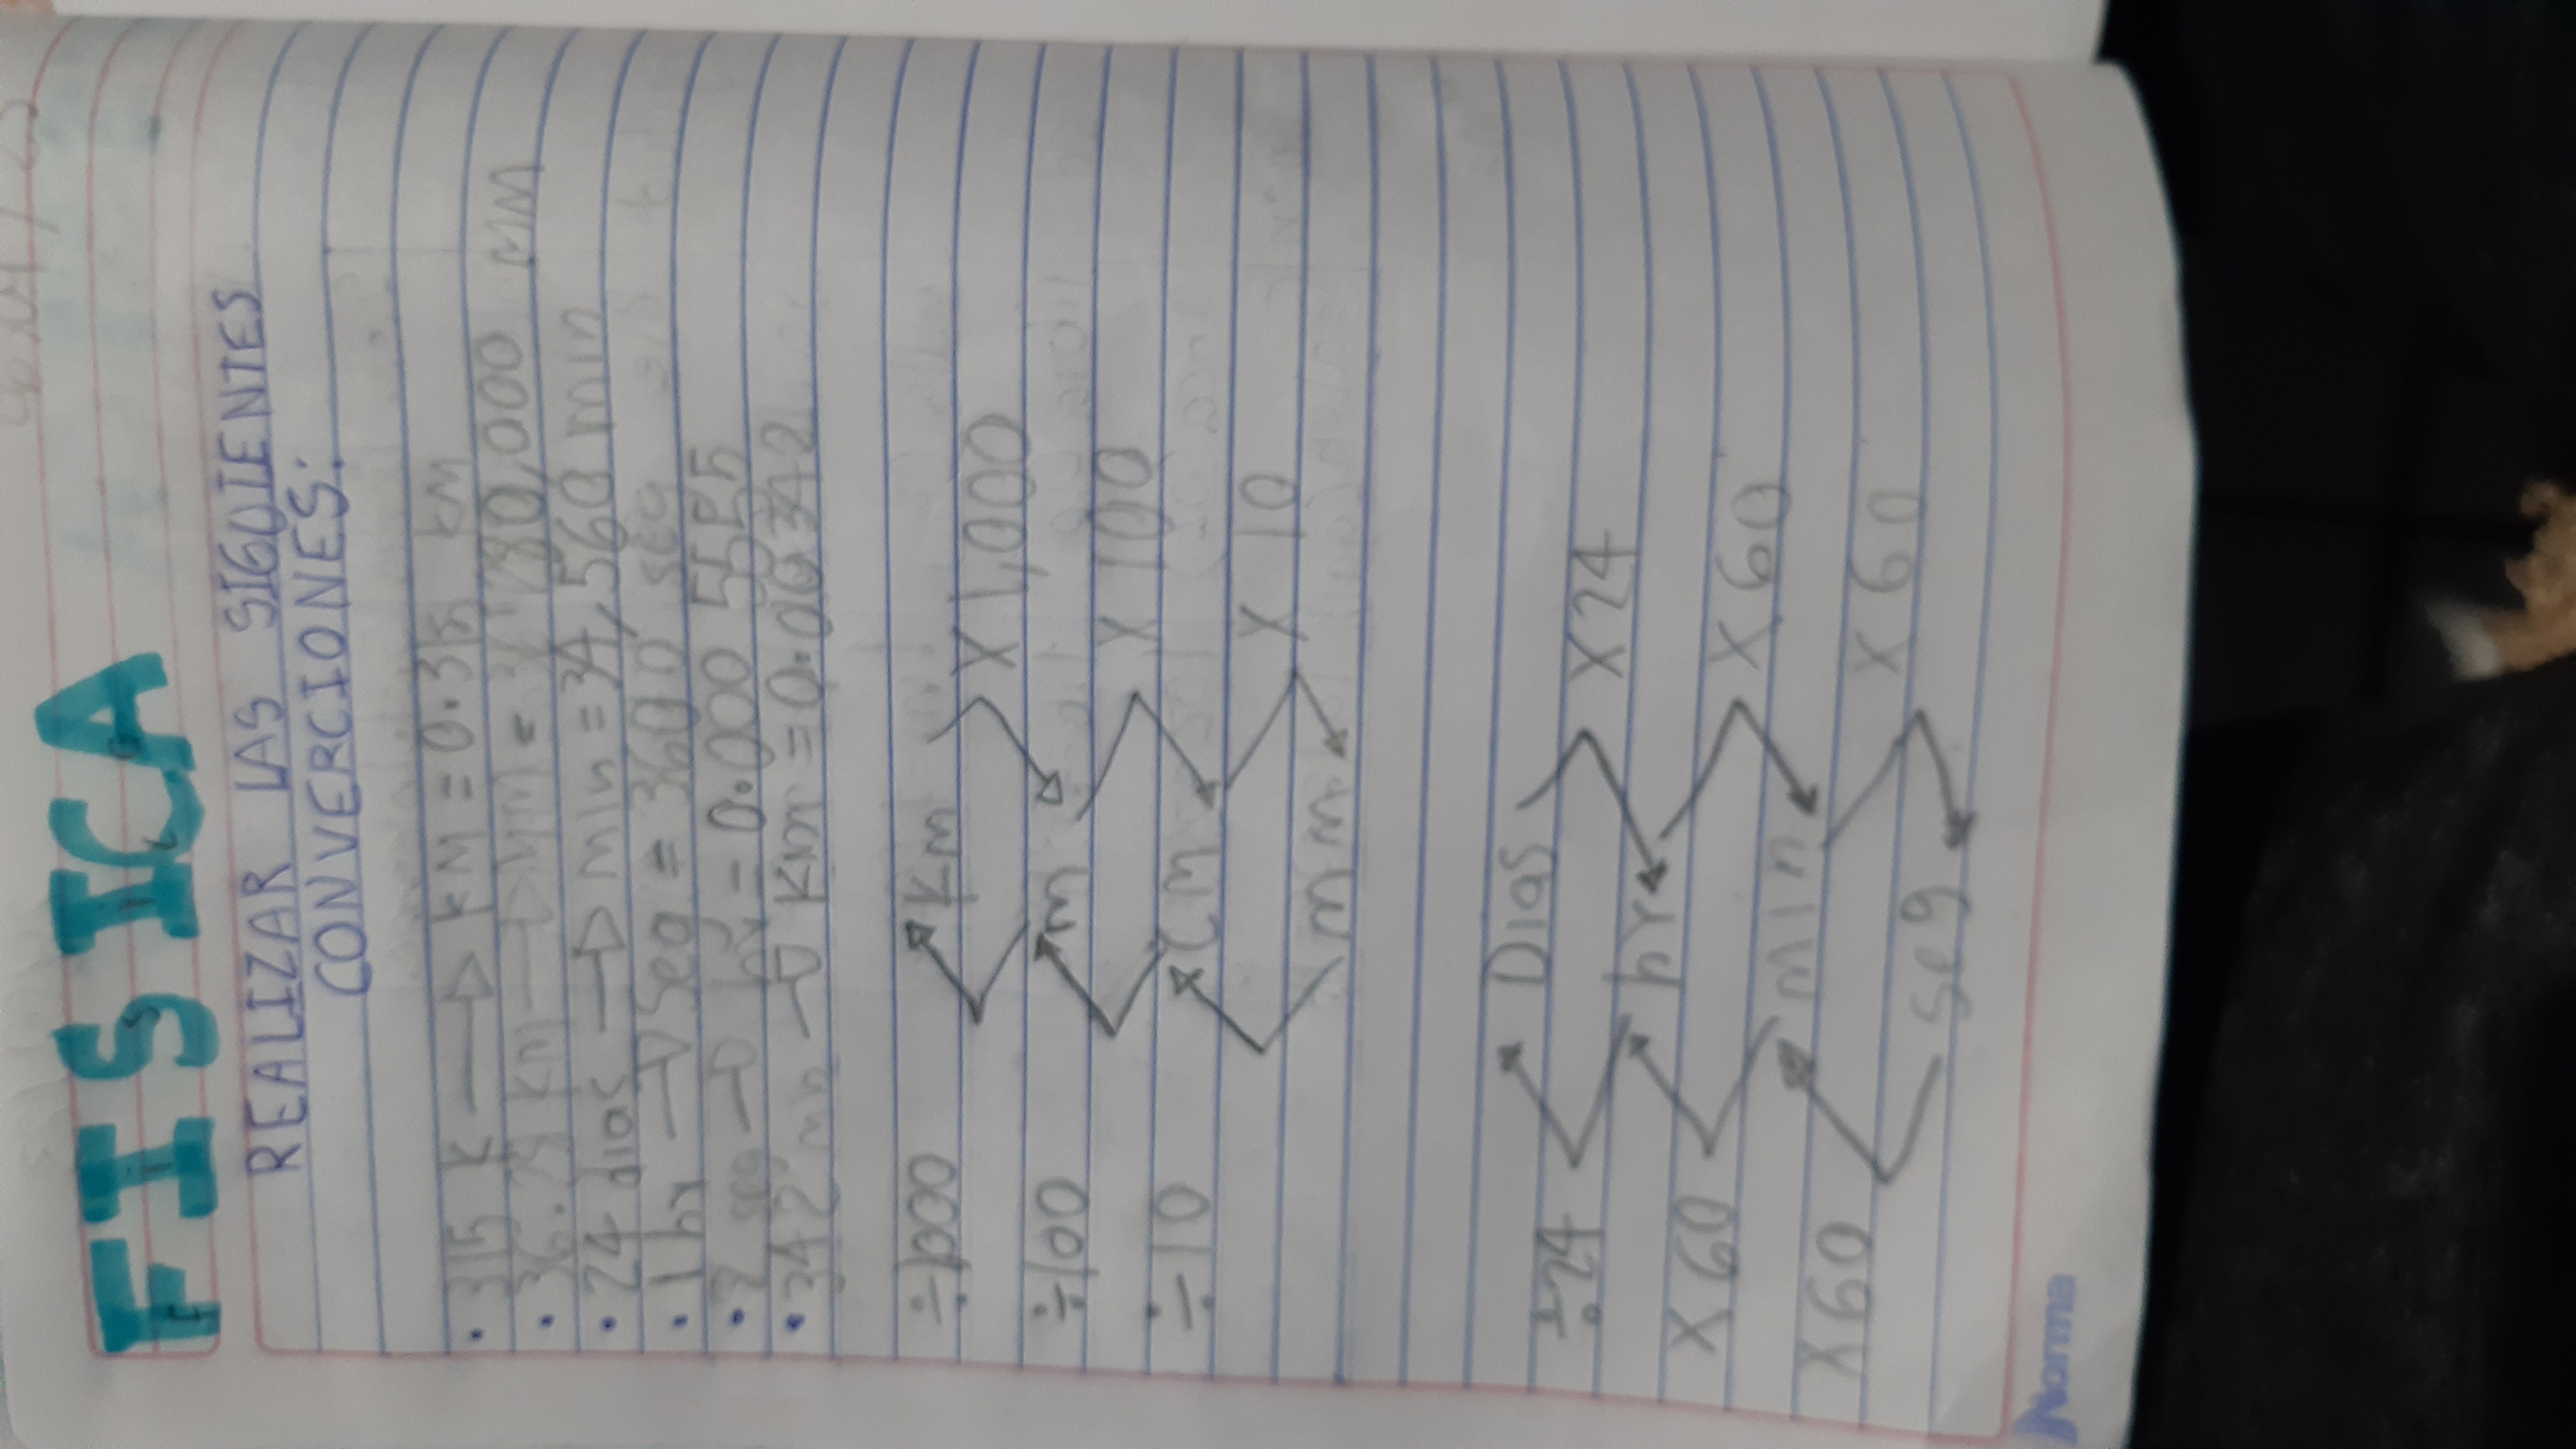 FISICA
REALIZAR LAS SIGUIENTES
CONVERCIONES:
• 315 → KM = 0.315 KM
• 36. KM → MM = 780,000 MM
• 24 dias → min = 34,560 min
• 1 hr → Seg = 3600 seg
• 2 seg → hr = 0.000 5555
• 342 → Km = 0.00342
÷1000 Km X 1,000
÷100 m X 100
÷10 cm X 10
mm
Dias X24
÷24 hr X 60
X60 min X 60
X60 seg
Norma